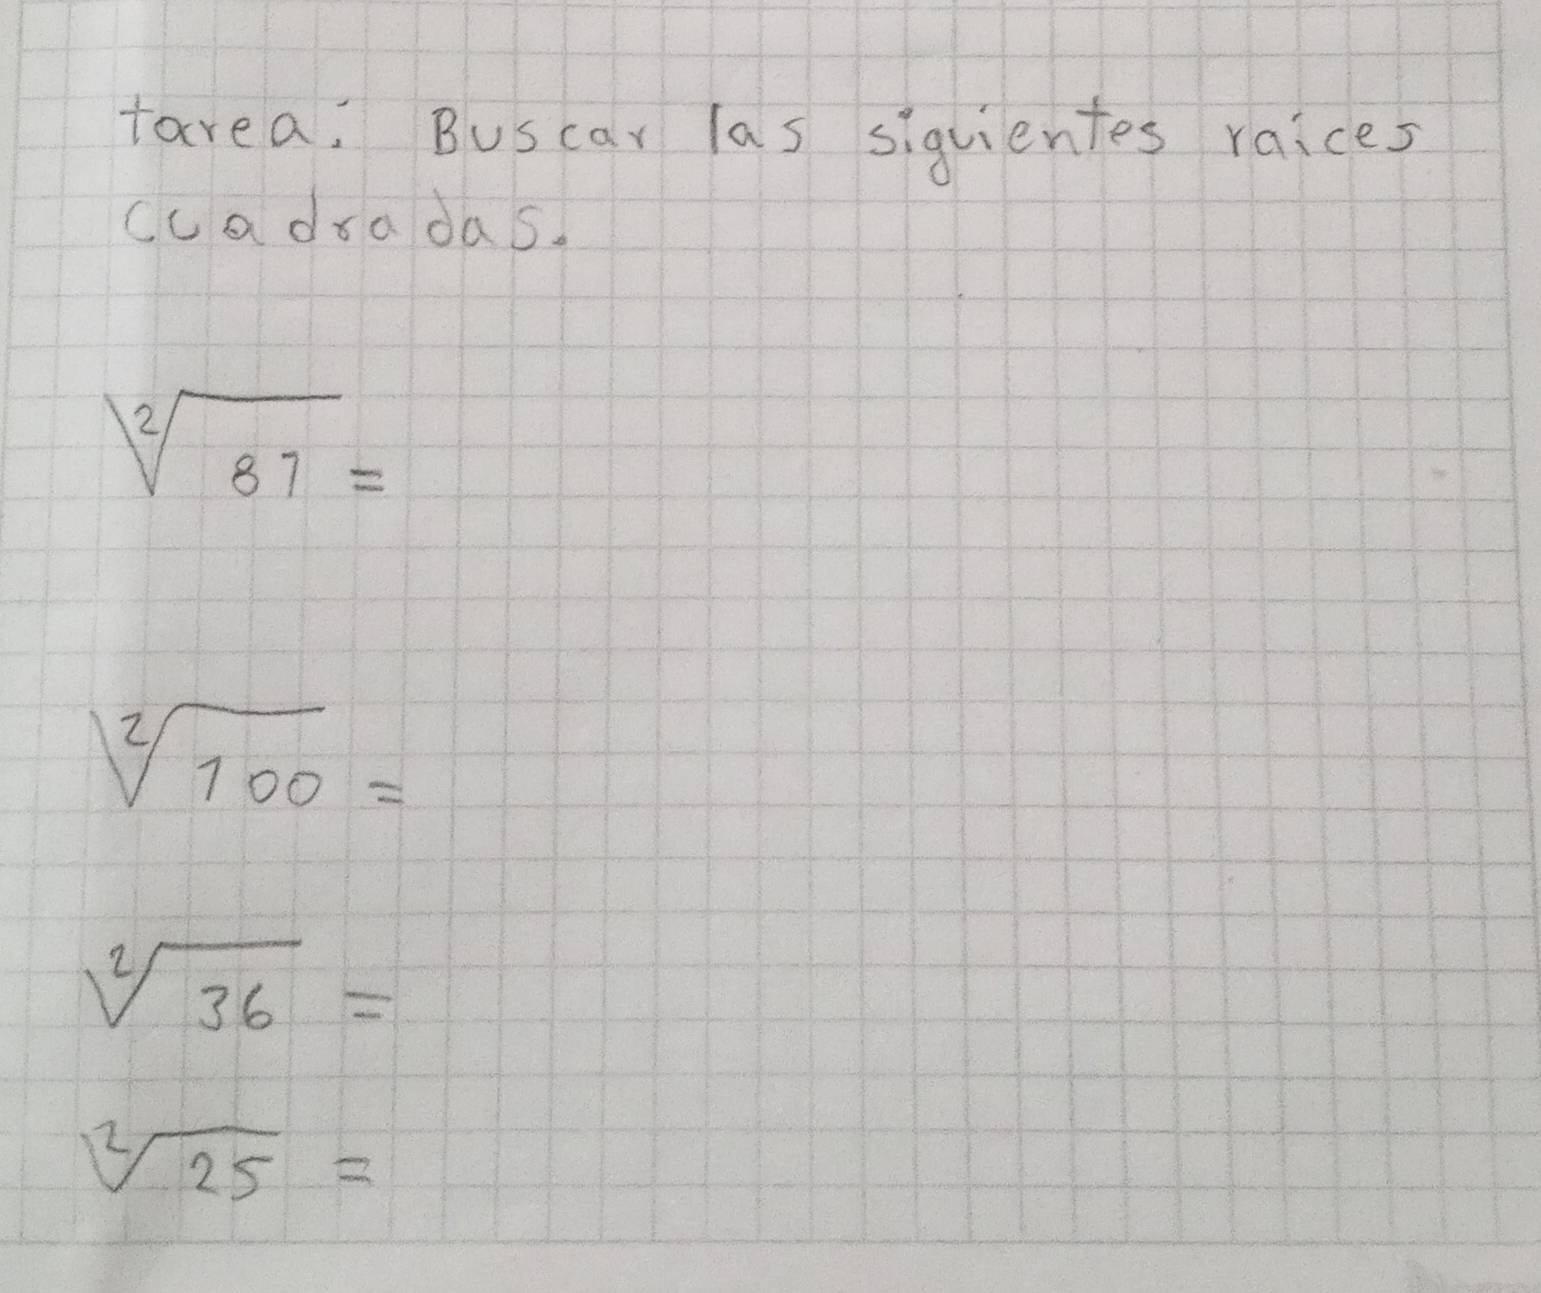 tarea: Buscar las siguientes raíces
cuadradas.
²√81 =
²√100 =
²√36 =
²√25 =